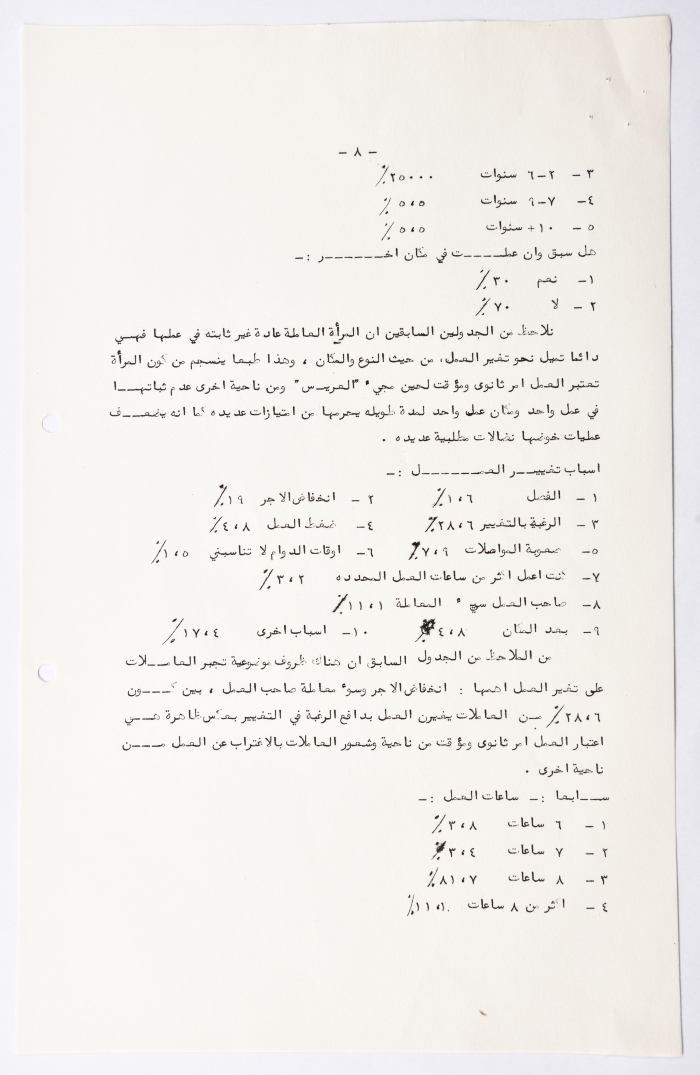 - ٨ -
٣ - ٢-٦ سنوات ٢٥٠٠٠٪
٤- ٧-٩ سنوات ٥،٥٪
٥- ١٠+ سنوات ٥،٥٪
هل سبق وان عملـــت في مكان اخـــــر :-
١- نعم ٣٠٪
٢ - لا ٧٠٪
نلاحظ من الجدولين السابقين ان المرأة العاملة عادة غير ثابته في عملها فهـي
دائما تميل نحو تغير العمل، من حيث النوع والمكان ، وهذا طبعا ينسجم من كون المرأة
تعتبر العمل امر ثانوى ومؤقت لحين مجيء "العريس" ومن ناحية اخرى عدم ثباتهـــا
في عمل واحد ومكان عمل واحد لمدة طويله يحرمها من امتيازات عديده كما انه يضعـــف
عمليات خوضها نضالات مطلبية عديده .
اسباب تغييــر العمـــــل :-
١ - الفصل ١،٦٪ ٢ - انخفاض الاجر ١٩٪
٣ - الرغبة بالتغيير ٢٨،٦٪ ٤- ضغط العمل ٤،٨٪
٥- صعوبة المواصلات ٧،٩٪ ٦- اوقات الدوام لا تناسبني ١،٥٪
٧- كنت اعمل اكثر من ساعات العمل المحدده ٣،٢٪
٨- صاحب العمل سيء المعاملة ١١،١٪
٩- بعد المكان ٤،٨٪ ١٠- اسباب اخرى ١٧،٤٪
من الملاحظ من الجدول السابق ان هناك ظروف موضوعية تجبر العامـــلات
على تغير العمل اهمها : انخفاض الاجر وسوء معاملة صاحب العمل ، بين كـــون
٢٨،٦٪ مــن العاملات يغيرن العمل بدافع الرغبة في التغيير بعكس ظاهرة هـــي
اعتبار العمل امر ثانوى ومؤقت من ناحية وشعور العاملات بالاغتراب عن العمل مـــن
ناحية اخرى .
ســـابعا :- ساعات العمل :-
١ - ٦ ساعات ٣،٨٪
٢ - ٧ ساعات ٣،٤٪
٣- ٨ ساعات ٨١،٧٪
٤ - اكثر من ٨ ساعات ١١،١٪